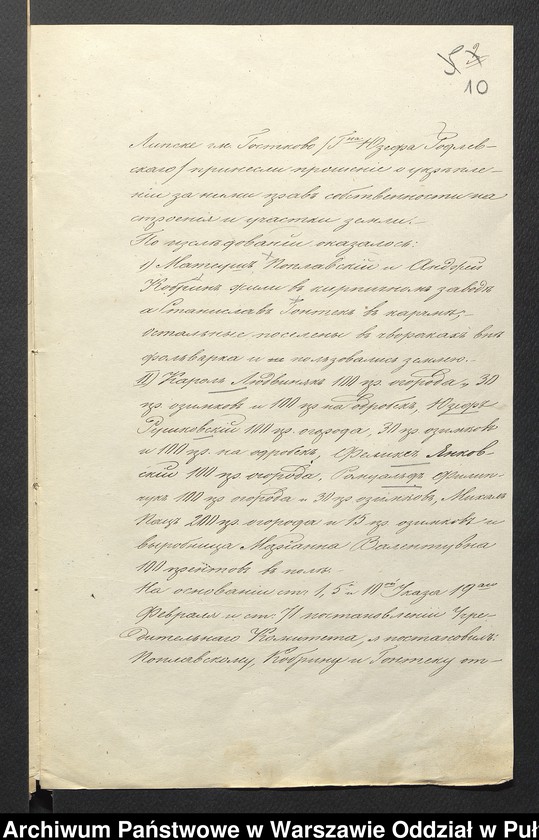 10
Липске гм. Гостково / Гна Юзефа Годлев-
скаго / принесли прошеніе о укрѣпле-
ніи за ними правъ собственности на
строенія и участки земли.-
По изслѣдованіи оказалось:
I) Матеушъ Поплавскій и Андрей
Кобринъ жили въ кирпичномъ заводѣ
а Станиславъ Гонтекъ въ кармѣ;-
остальные поселены въ дворакахъ внѣ
фольварка и пользовались землею.-
II) Кароль Людвинякъ 100 пр. огорода, 30
пр. озимковъ и 100 пр. на одробскъ, Юзефъ
Рушковскій 100 пр. огорода, 30 пр. озимковъ
и 100 пр. на одробскъ, Феликсъ Янков-
скій 100 пр. огорода, Ромуальдъ Филип-
чукъ 100 пр. огорода и 30 пр. озимковъ, Михаль
Пацъ 200 пр. огорода и 15 пр. озимковъ и
выробница Маріанна Валентувна
100 прентовъ въ полѣ.-
На основаніи ст. 1, 5 и 10ой Указа 19аго
Февраля и ст. 71 постановленія Учре-
дительнаго Комитета, я постановилъ:
Поплавскому, Кобрину и Гонтеку от-
Archiwum Państwowe w Warszawie Oddział w Puł